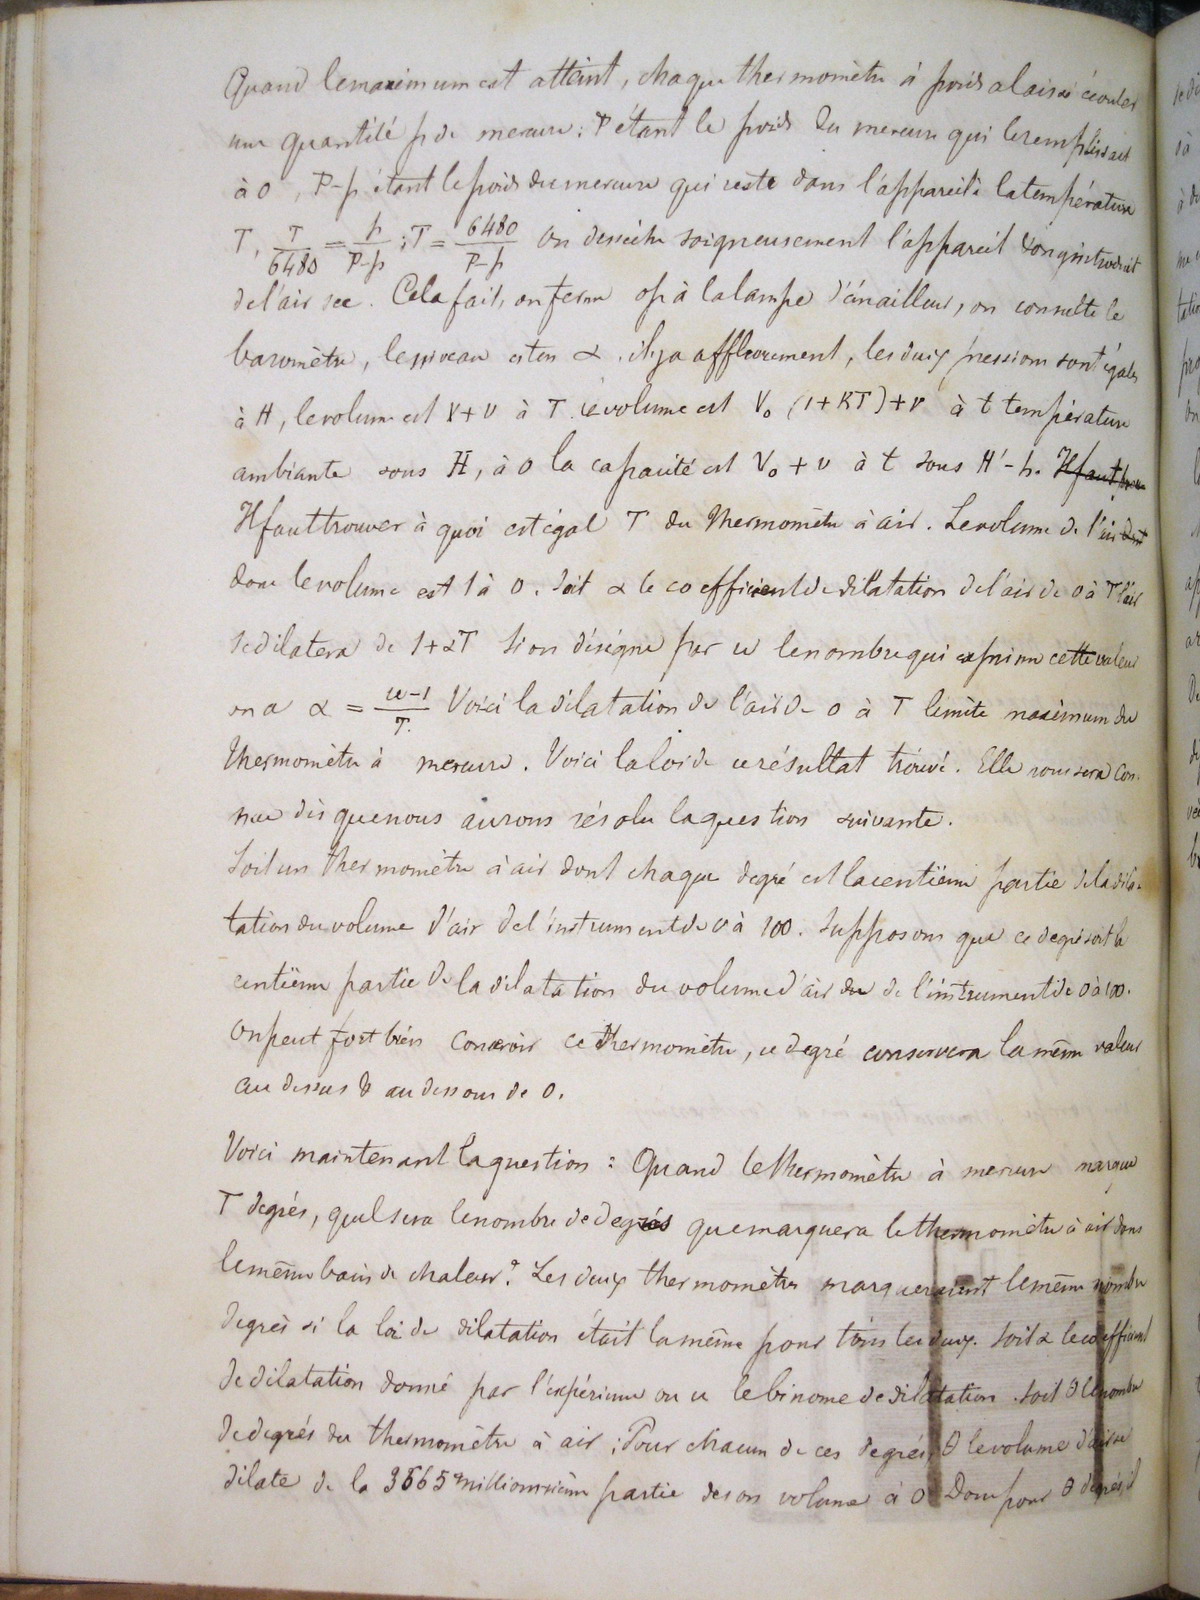 Quand le maximum est atteint, chaque thermomètre à poids a laissé écouler
une quantité p de mercure : P étant le poids du mercure qui le remplissait
à 0, P-p étant le poids du mercure qui reste dans l'appareil à la température
T, T/6480 = p/P-p ; T = 6480/P-p On dessèche soigneusement l'appareil
de l'air sec. Cela fait, on ferme op à la lampe d'émailleur, on consulte le
baromètre, le niveau est en α. il y a affleurement, les deux pressions sont égales
à H, le volume est V+v à T. le volume est V₀ (1+KT)+v à t température
ambiante sous H, à 0 la capacité est V₀+v à t sous H'-h. Il faut
Il faut trouver à quoi est égal T du thermomètre à air. Le volume de l'air
dont le volume est 1 à 0. Soit α le coefficient de dilatation de l'air de 0 à T l'air
se dilatera de 1+αT Si on désigne par u le nombre qui exprime cette valeur
on a α = u-1/T. Voici la dilatation de l'air de 0 à T limite maximum du
thermomètre à mercure. Voici la loi de ce résultat trouvé. Elle nous sera con-
nue dès que nous aurons résolu la question suivante.
Soit un thermomètre à air dont chaque degré est la centième partie de la dila-
tation du volume d'air de l'instrument de 0 à 100. Supposons que ce degré soit la
centième partie de la dilatation du volume d'air du de l'instrument de 0 à 100.
On peut fort bien concevoir ce thermomètre, ce degré conservera la même valeur
au dessus & au dessous de 0.
Voici maintenant la question : Quand le thermomètre à mercure marque
T degrés, quel sera le nombre de degrés que marquera le thermomètre à air dans
le même bain de chaleur ? Les deux thermomètres marqueraient le même nombre
degrés si la loi de dilatation était la même pour tous les deux. Soit α le coefficient
de dilatation donné par l'expérience ou u le binome de dilatation. Soit θ le nombre
de degrés du thermomètre à air ; Pour chacun de ces degrés, θ le volume d'air se
dilate de la 3665 millionnième partie de son volume à 0 Donc pour θ degrés, il